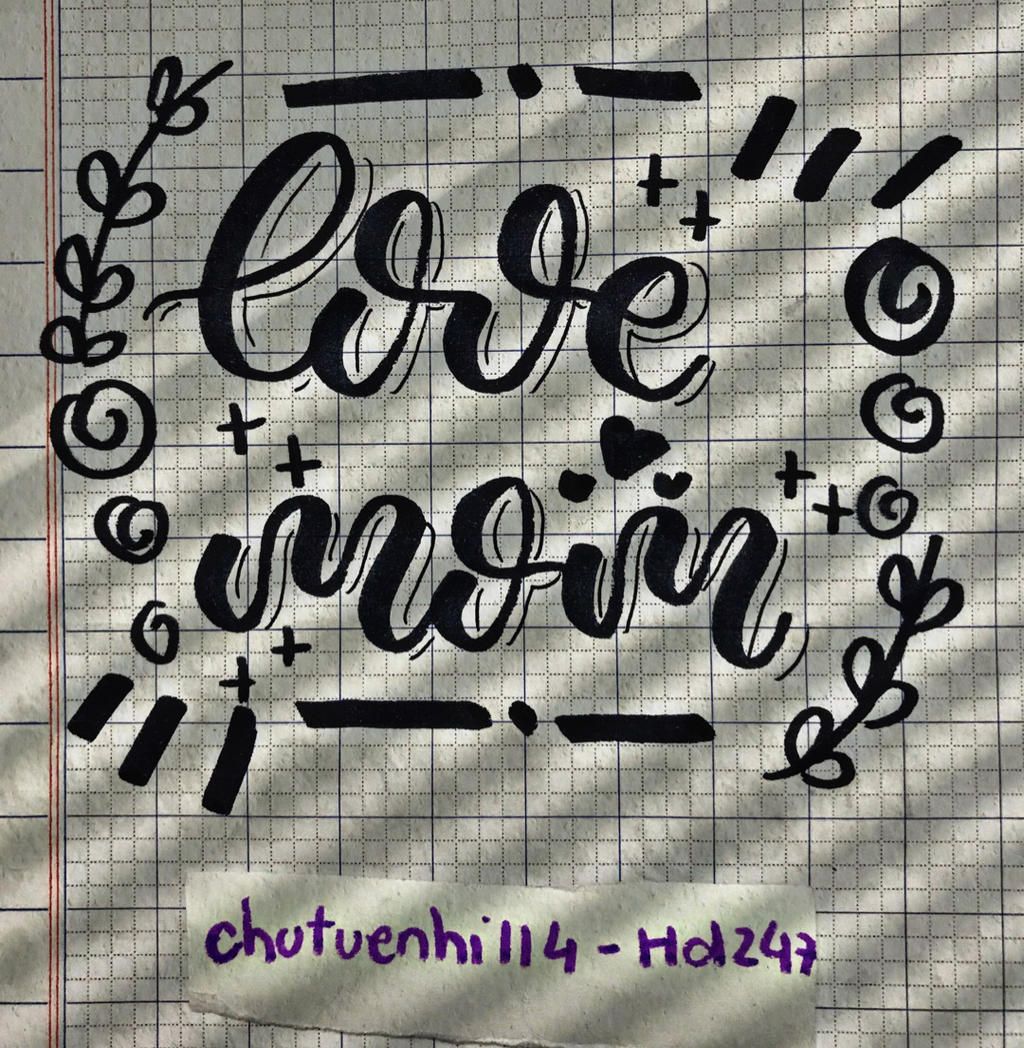 love
moin
chutuenhi114 - Hd247